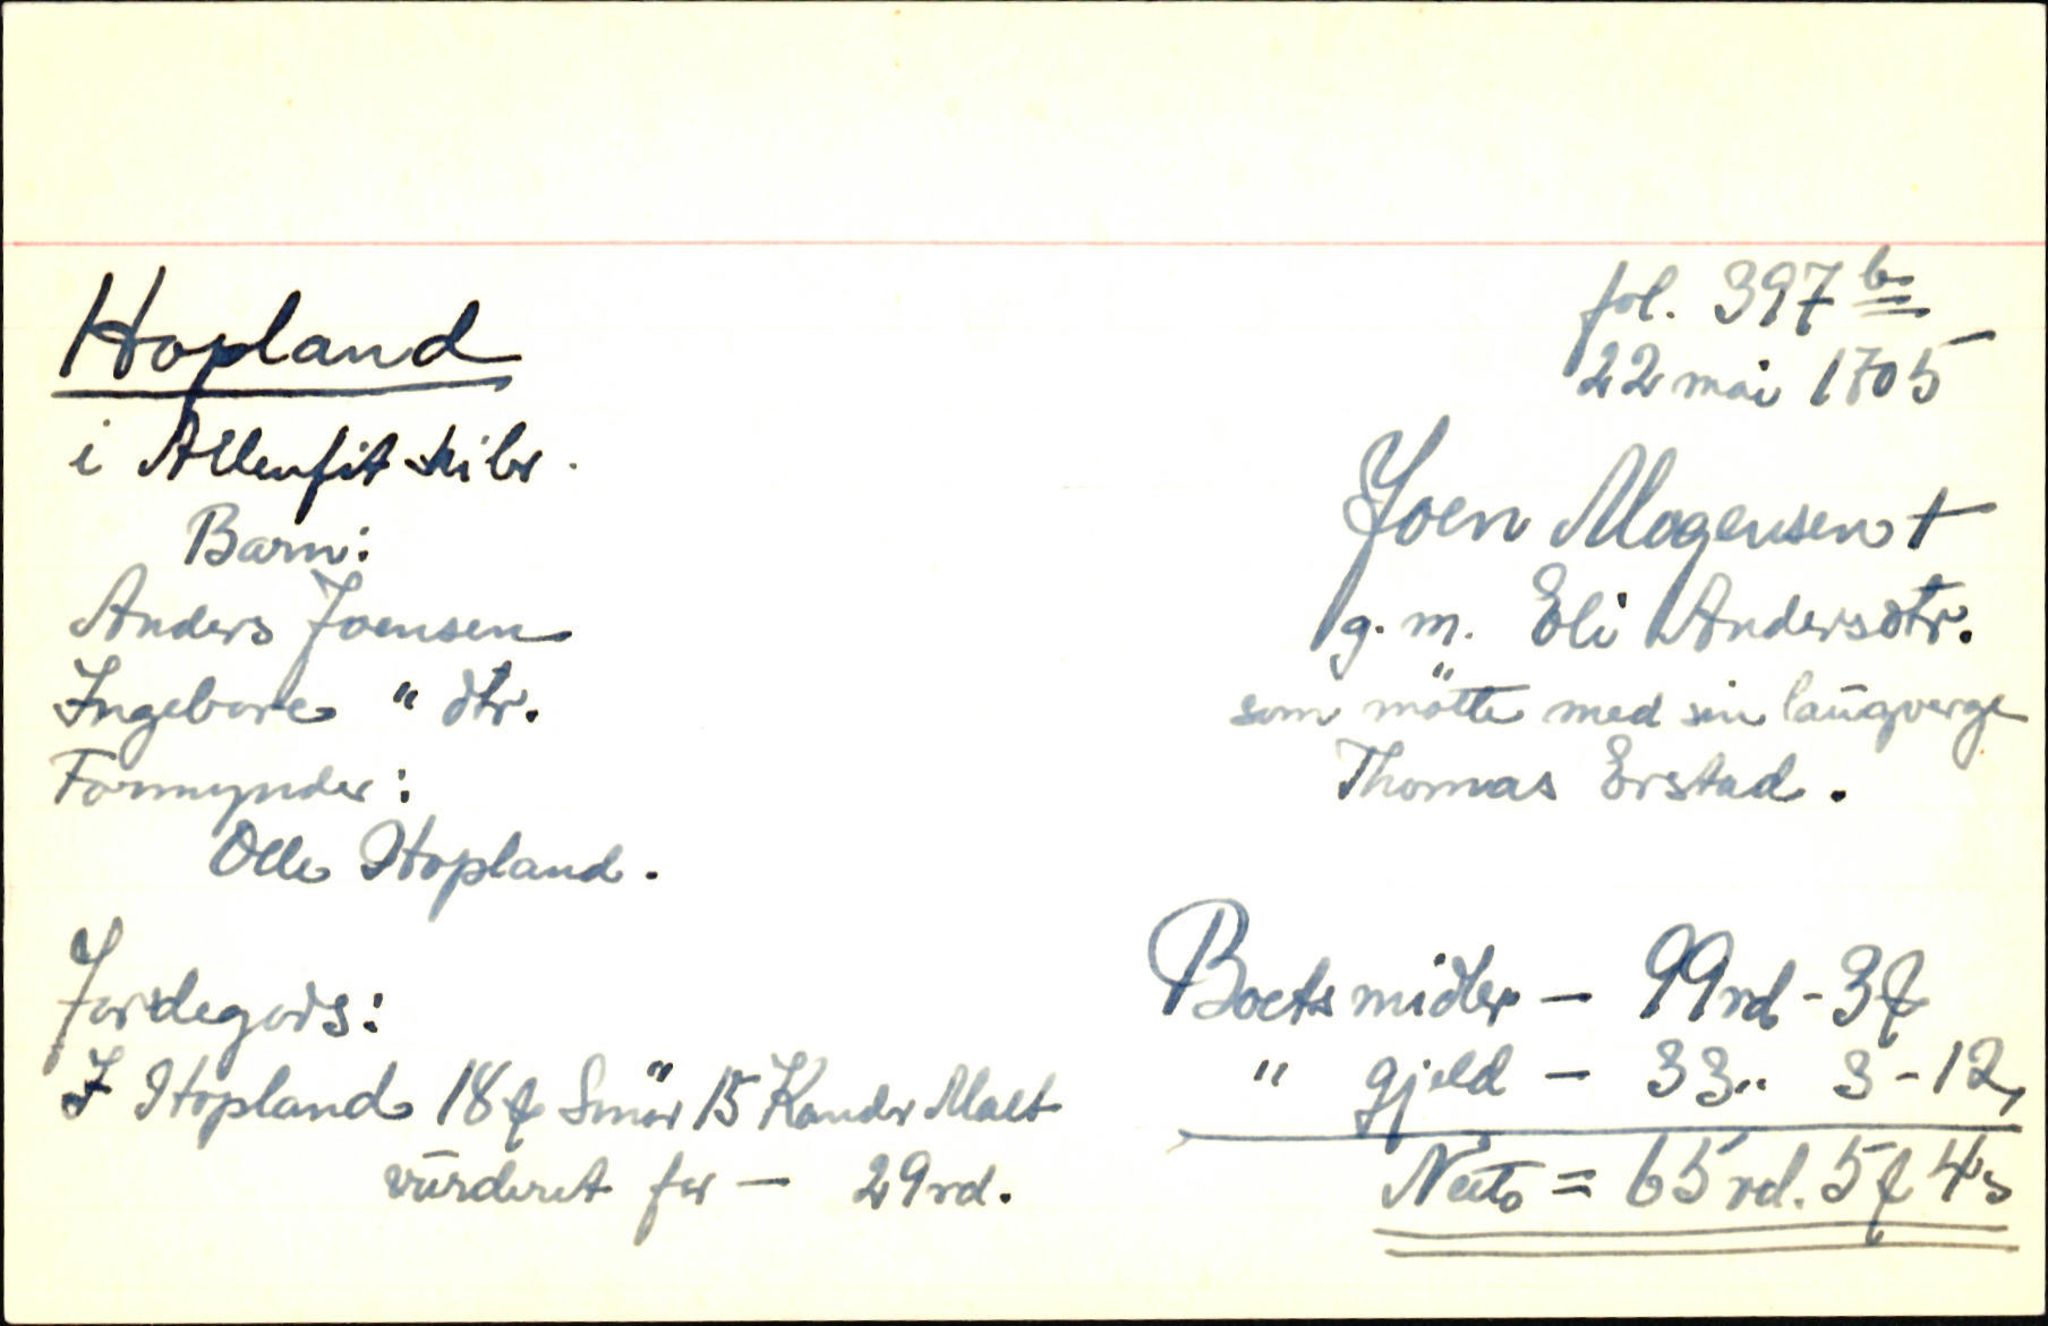 Hopland
i Allenfit skibr.
Barn:
Anders Joensen
Ingebore " dtr.
Formynder:
Olle Hopland.
Jordegods:
I Hopland 18 ʄ Smör 15 Kander Malt
vūrderet for — 29 rd.
fol. 397 b
22 mai 1705
Joen Mogensen †
g. m. Eli Andersdtr.
som mötte med sin laūgverge
Thomas Erstad.
Boets midler — 99 rd - 3 ʄ
" gjeld — 33 " 3 - 12
Netto = 65 rd. 5 ʄ 4 s